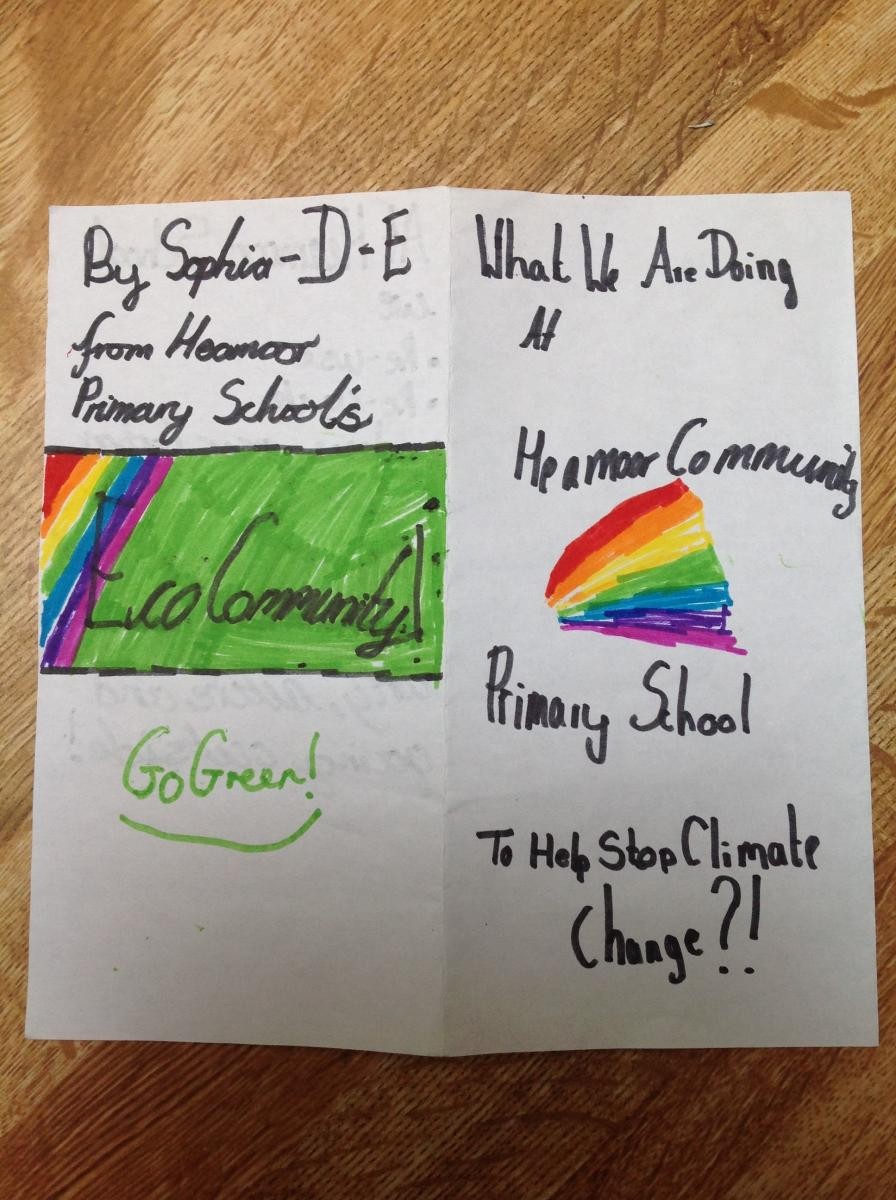 By Sophia-D-E
from Heamoor
Primary School's
Eco Community!
Go Green!
What We Are Doing
At
Heamoor Community
Primary School
To Help Stop Climate
Change?!